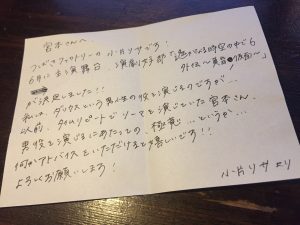 宮本さんへ
つばきファクトリーの小片リサです!
6月にまた舞台、演劇女子部「遙かなる時空の中で6
外伝〜黄昏ノ仮面〜」
が決定しました!!
私は、ダリウスという男性の役を演じるのですが…
以前、タイムリピートでソーマを演じていた宮本さん、
男役を演じるにあたっての、極意…というか…
何かアドバイスをいただけると嬉しいです!!
よろしくお願いします!
小片リサより